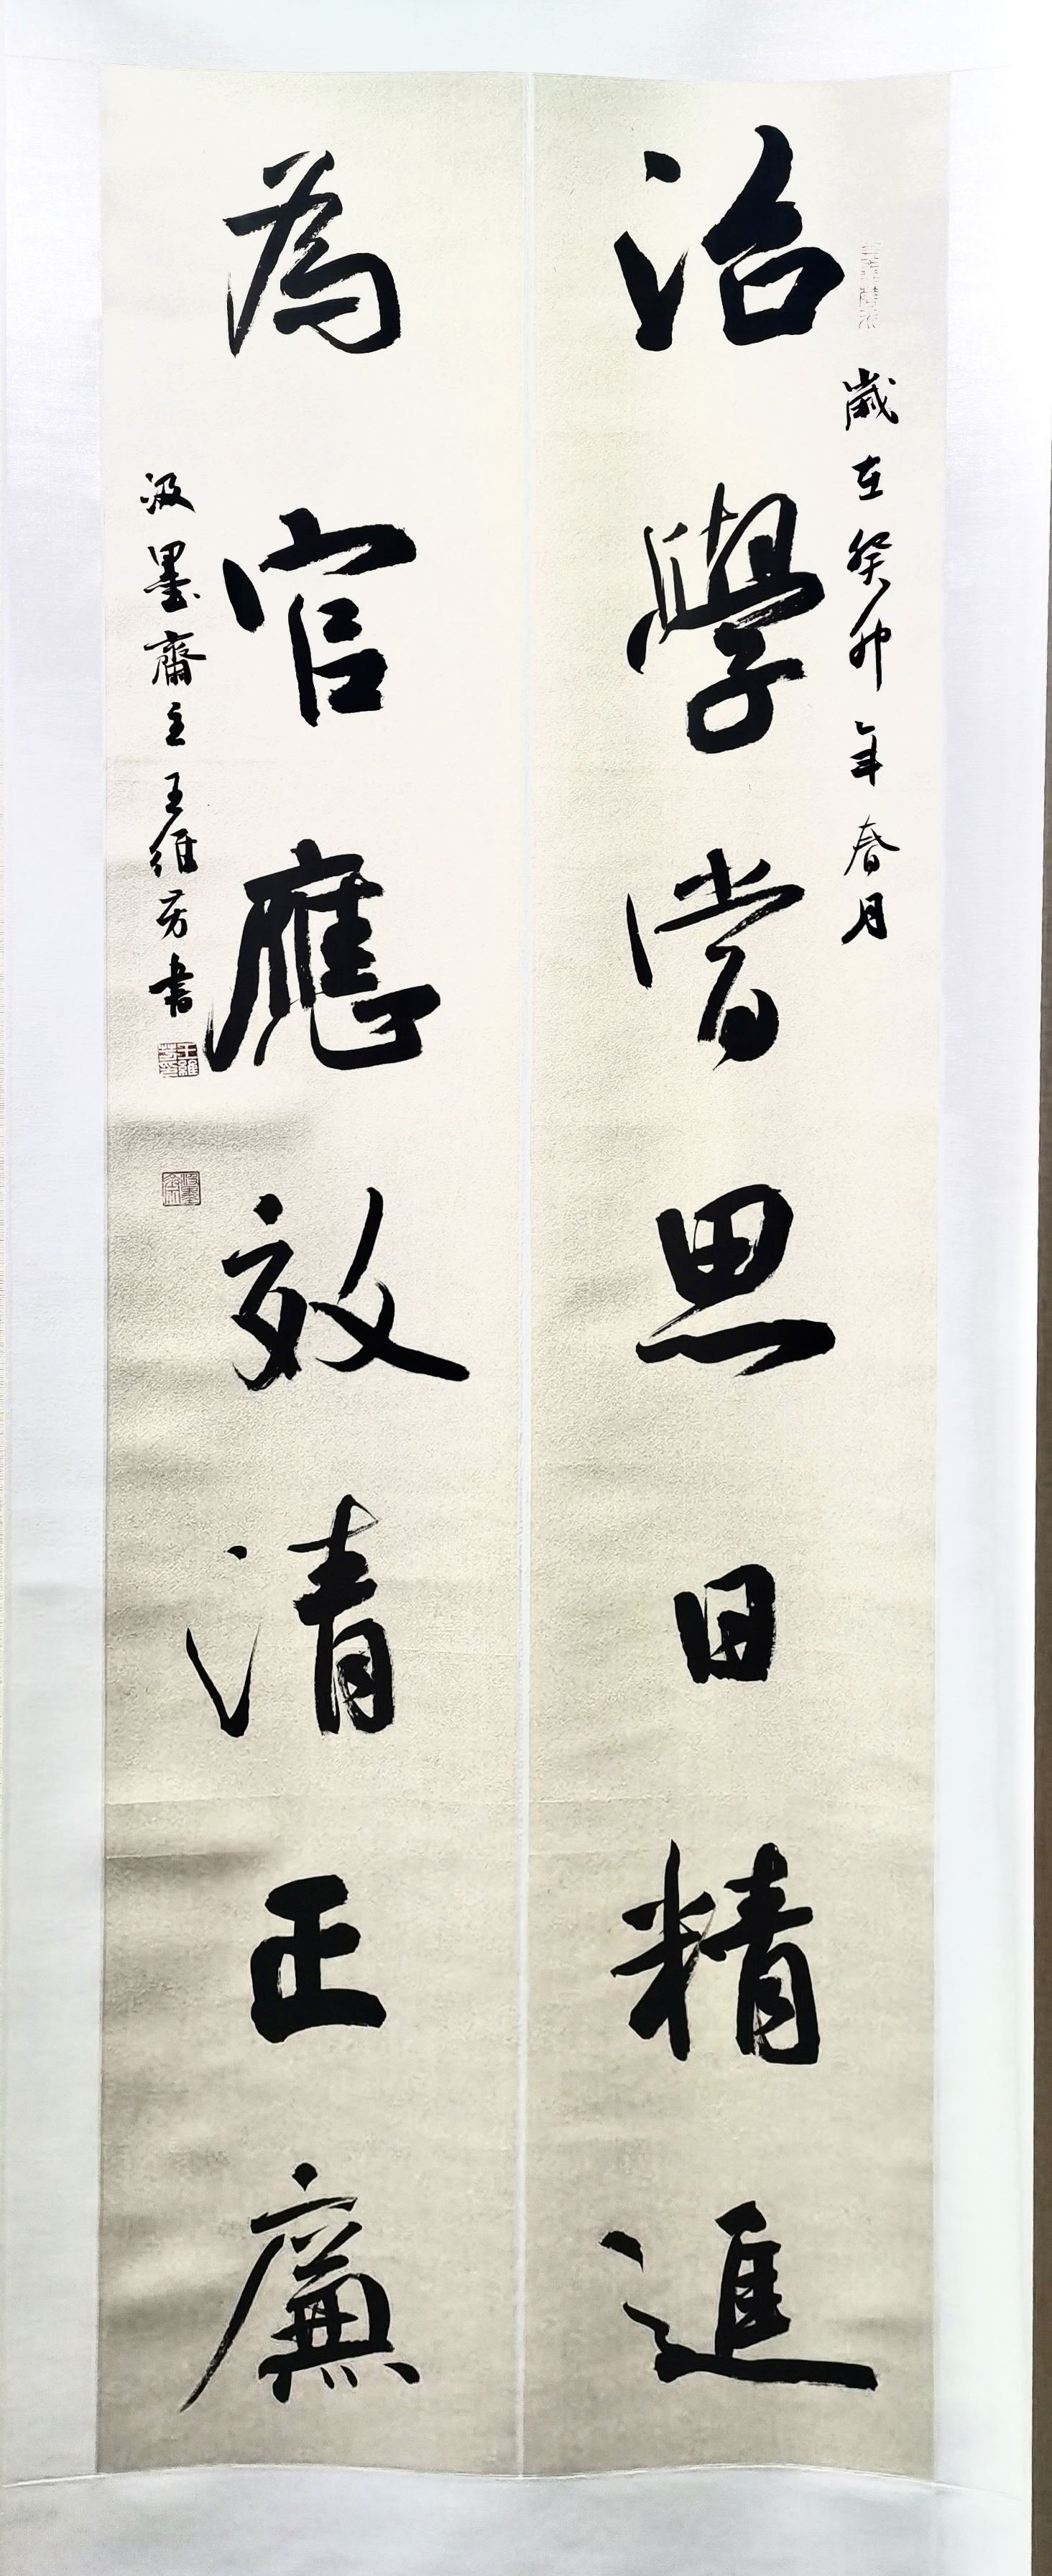 歲在癸卯年春月
治學當思日精進
為官應效清正廉
汲墨齋主王維芳書
王維芳印